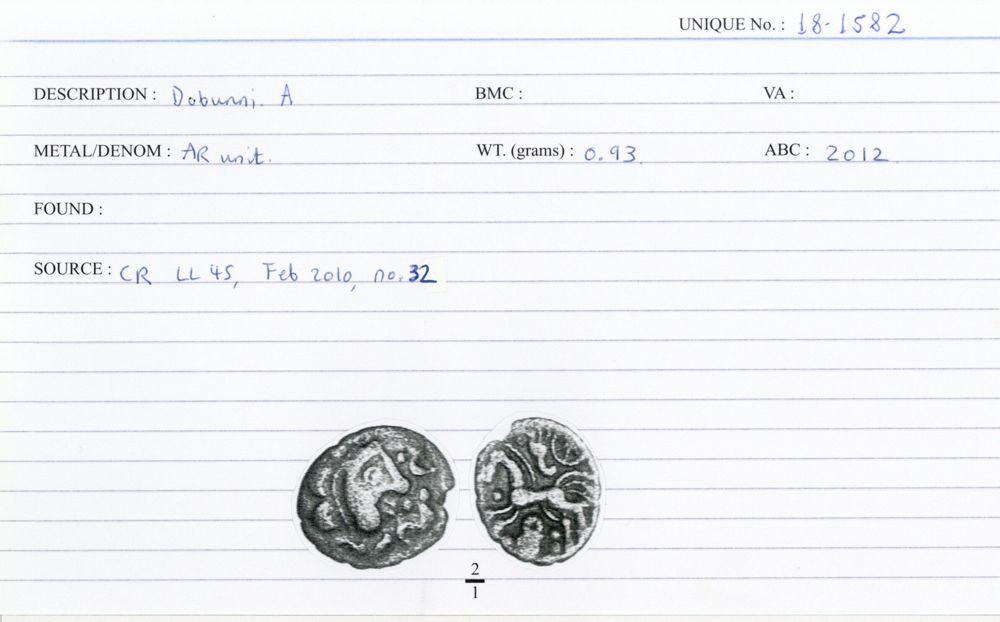 UNIQUE No. : 18-1582
DESCRIPTION : Dobunni. A BMC : VA :
METAL/DENOM : AR unit. WT. (grams) : 0.93 ABC : 2012
FOUND :
SOURCE : CR LL 45, Feb 2010, no. 32
2
1